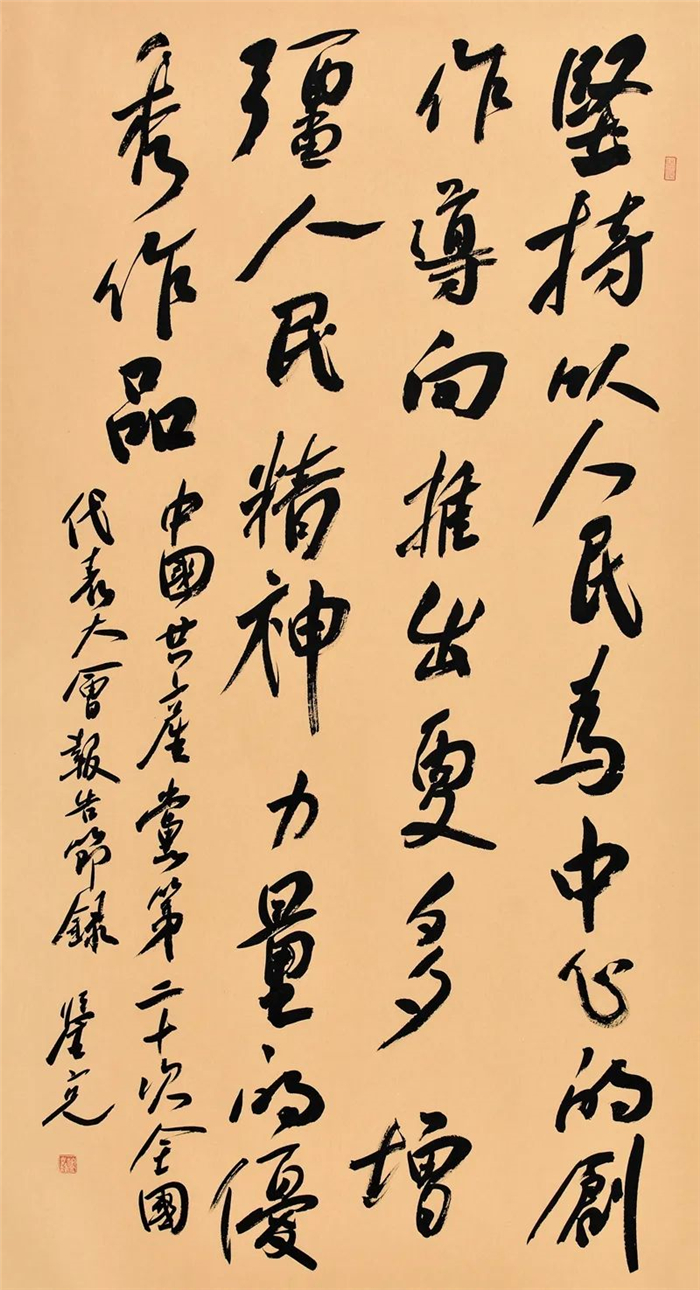 堅持以人民為中心的創
作導向推出更多增
彊人民精神力量的優
秀作品
中國共產黨第二十次全國
代表大會報告節錄